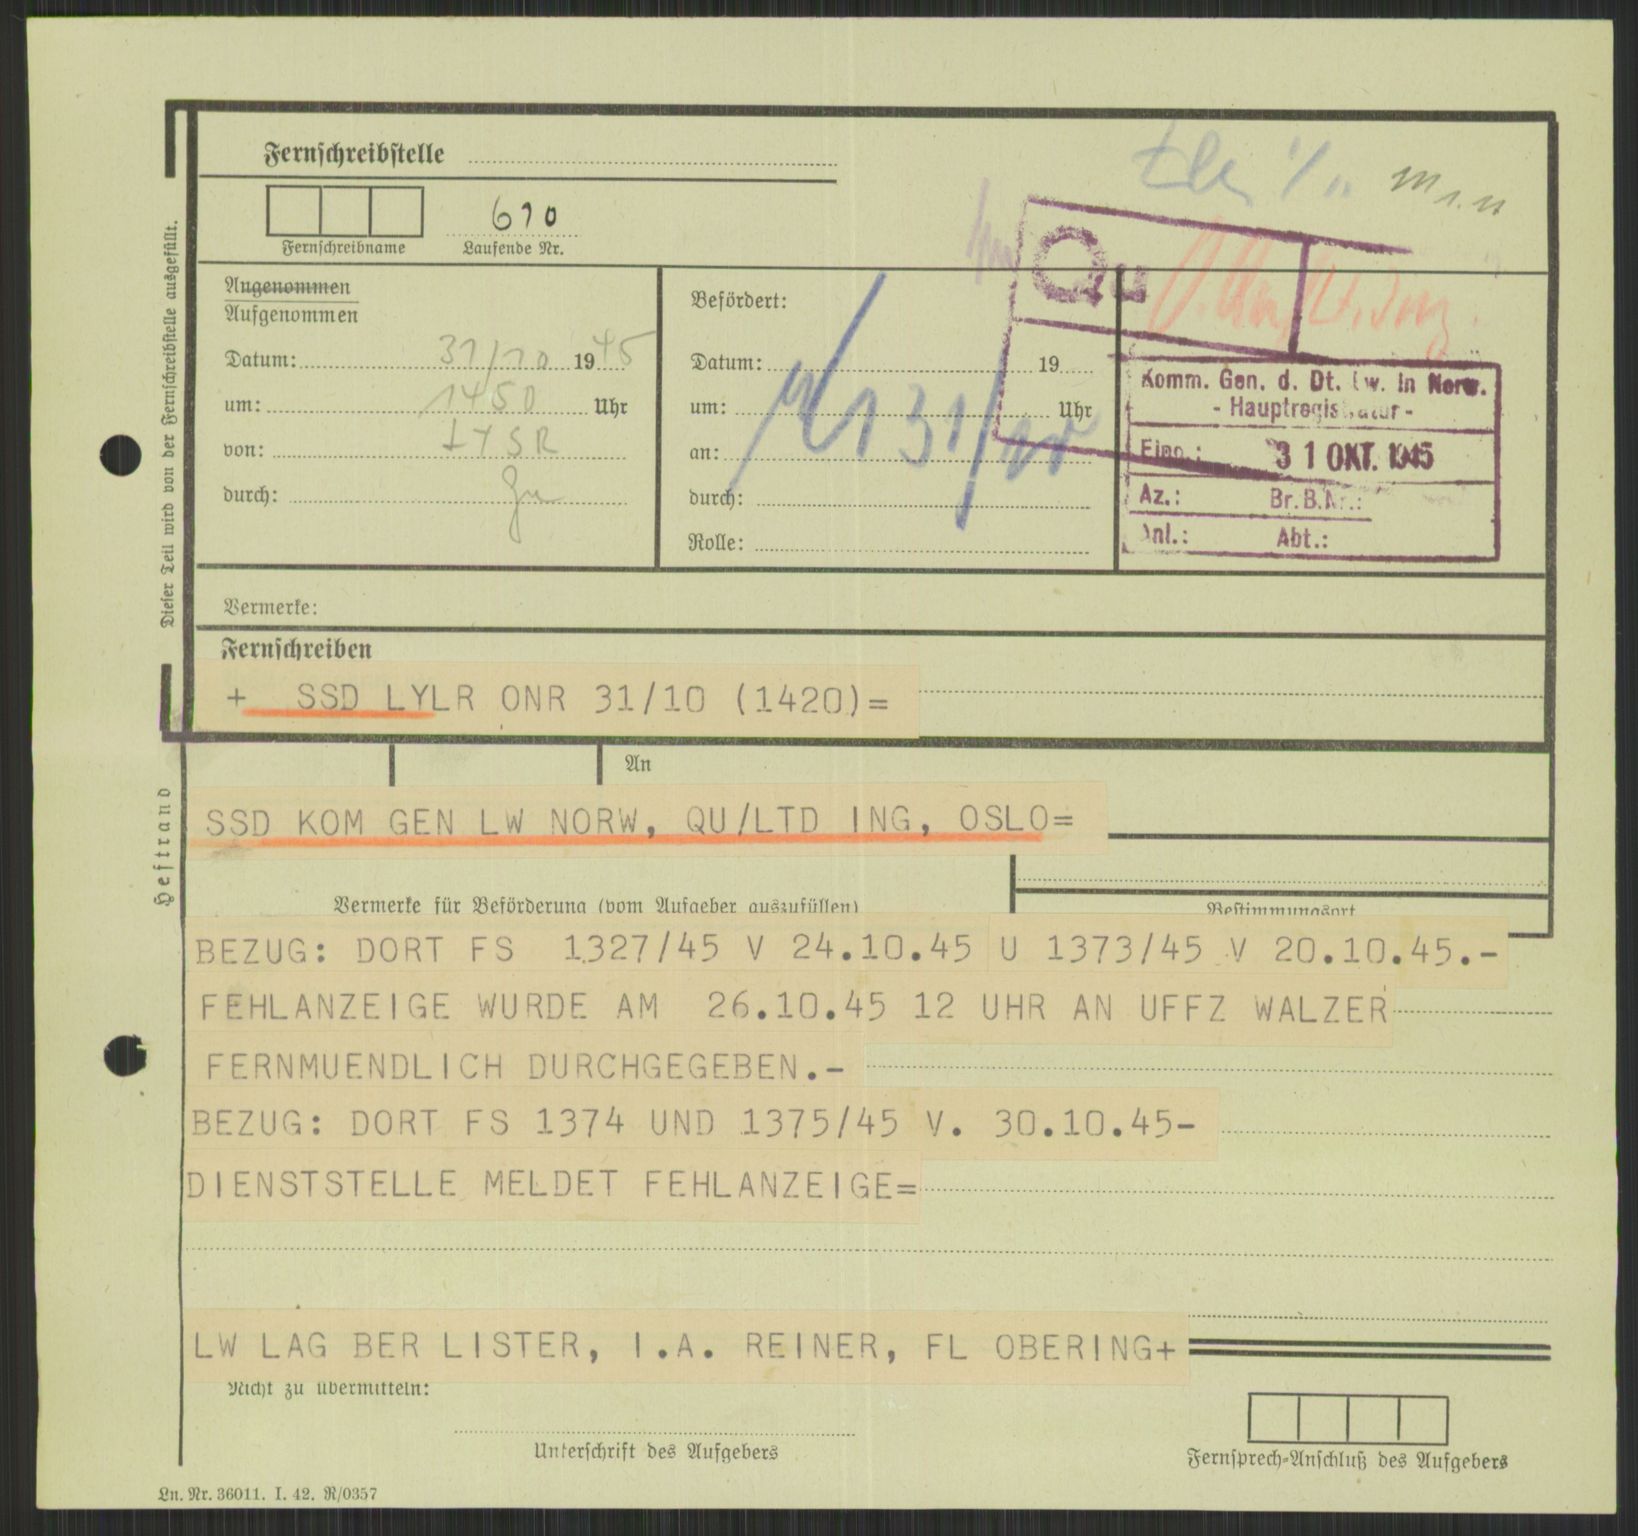 Fernschreibstelle
610
Fernschreibname Laufende Nr.
Angenommen
Aufgenommen
Datum: 31/10 1945
um: 1450 Uhr
von: LYSR
durch:
Befördert:
Datum: 19
um: Uhr
an:
durch:
Rolle:
31/10
Qu
Komm. Gen. d. Dt. Lw. in Norw.
- Hauptregistratur -
Eing.: 31 OKT. 1945
Az.: Br.B.Nr.:
Anl.: Abt.:
Dieser Teil wird von der Fernschreibstelle ausgefüllt.
Vermerke:
Fernschreiben
+ SSD LYLR ONR 31/10 (1420)=
An
SSD KOM GEN LW NORW, QU/LTD ING, OSLO=
Heftrand
Vermerke für Beförderung (vom Aufgeber auszufüllen)
Bestimmungsort
BEZUG: DORT FS 1327/45 V 24.10.45 U 1373/45 V 20.10.45.-
FEHLANZEIGE WURDE AM 26.10.45 12 UHR AN UFFZ WALZER
FERNMUENDLICH DURCHGEGEBEN.-
BEZUG: DORT FS 1374 UND 1375/45 V. 30.10.45-
DIENSTSTELLE MELDET FEHLANZEIGE=
LW LAG BER LISTER, I.A. REINER, FL OBERING+
Nicht zu übermitteln:
Unterschrift des Aufgebers
Fernsprech-Anschluß des Aufgebers
Ln. Nr. 36011. I. 42. R/0357